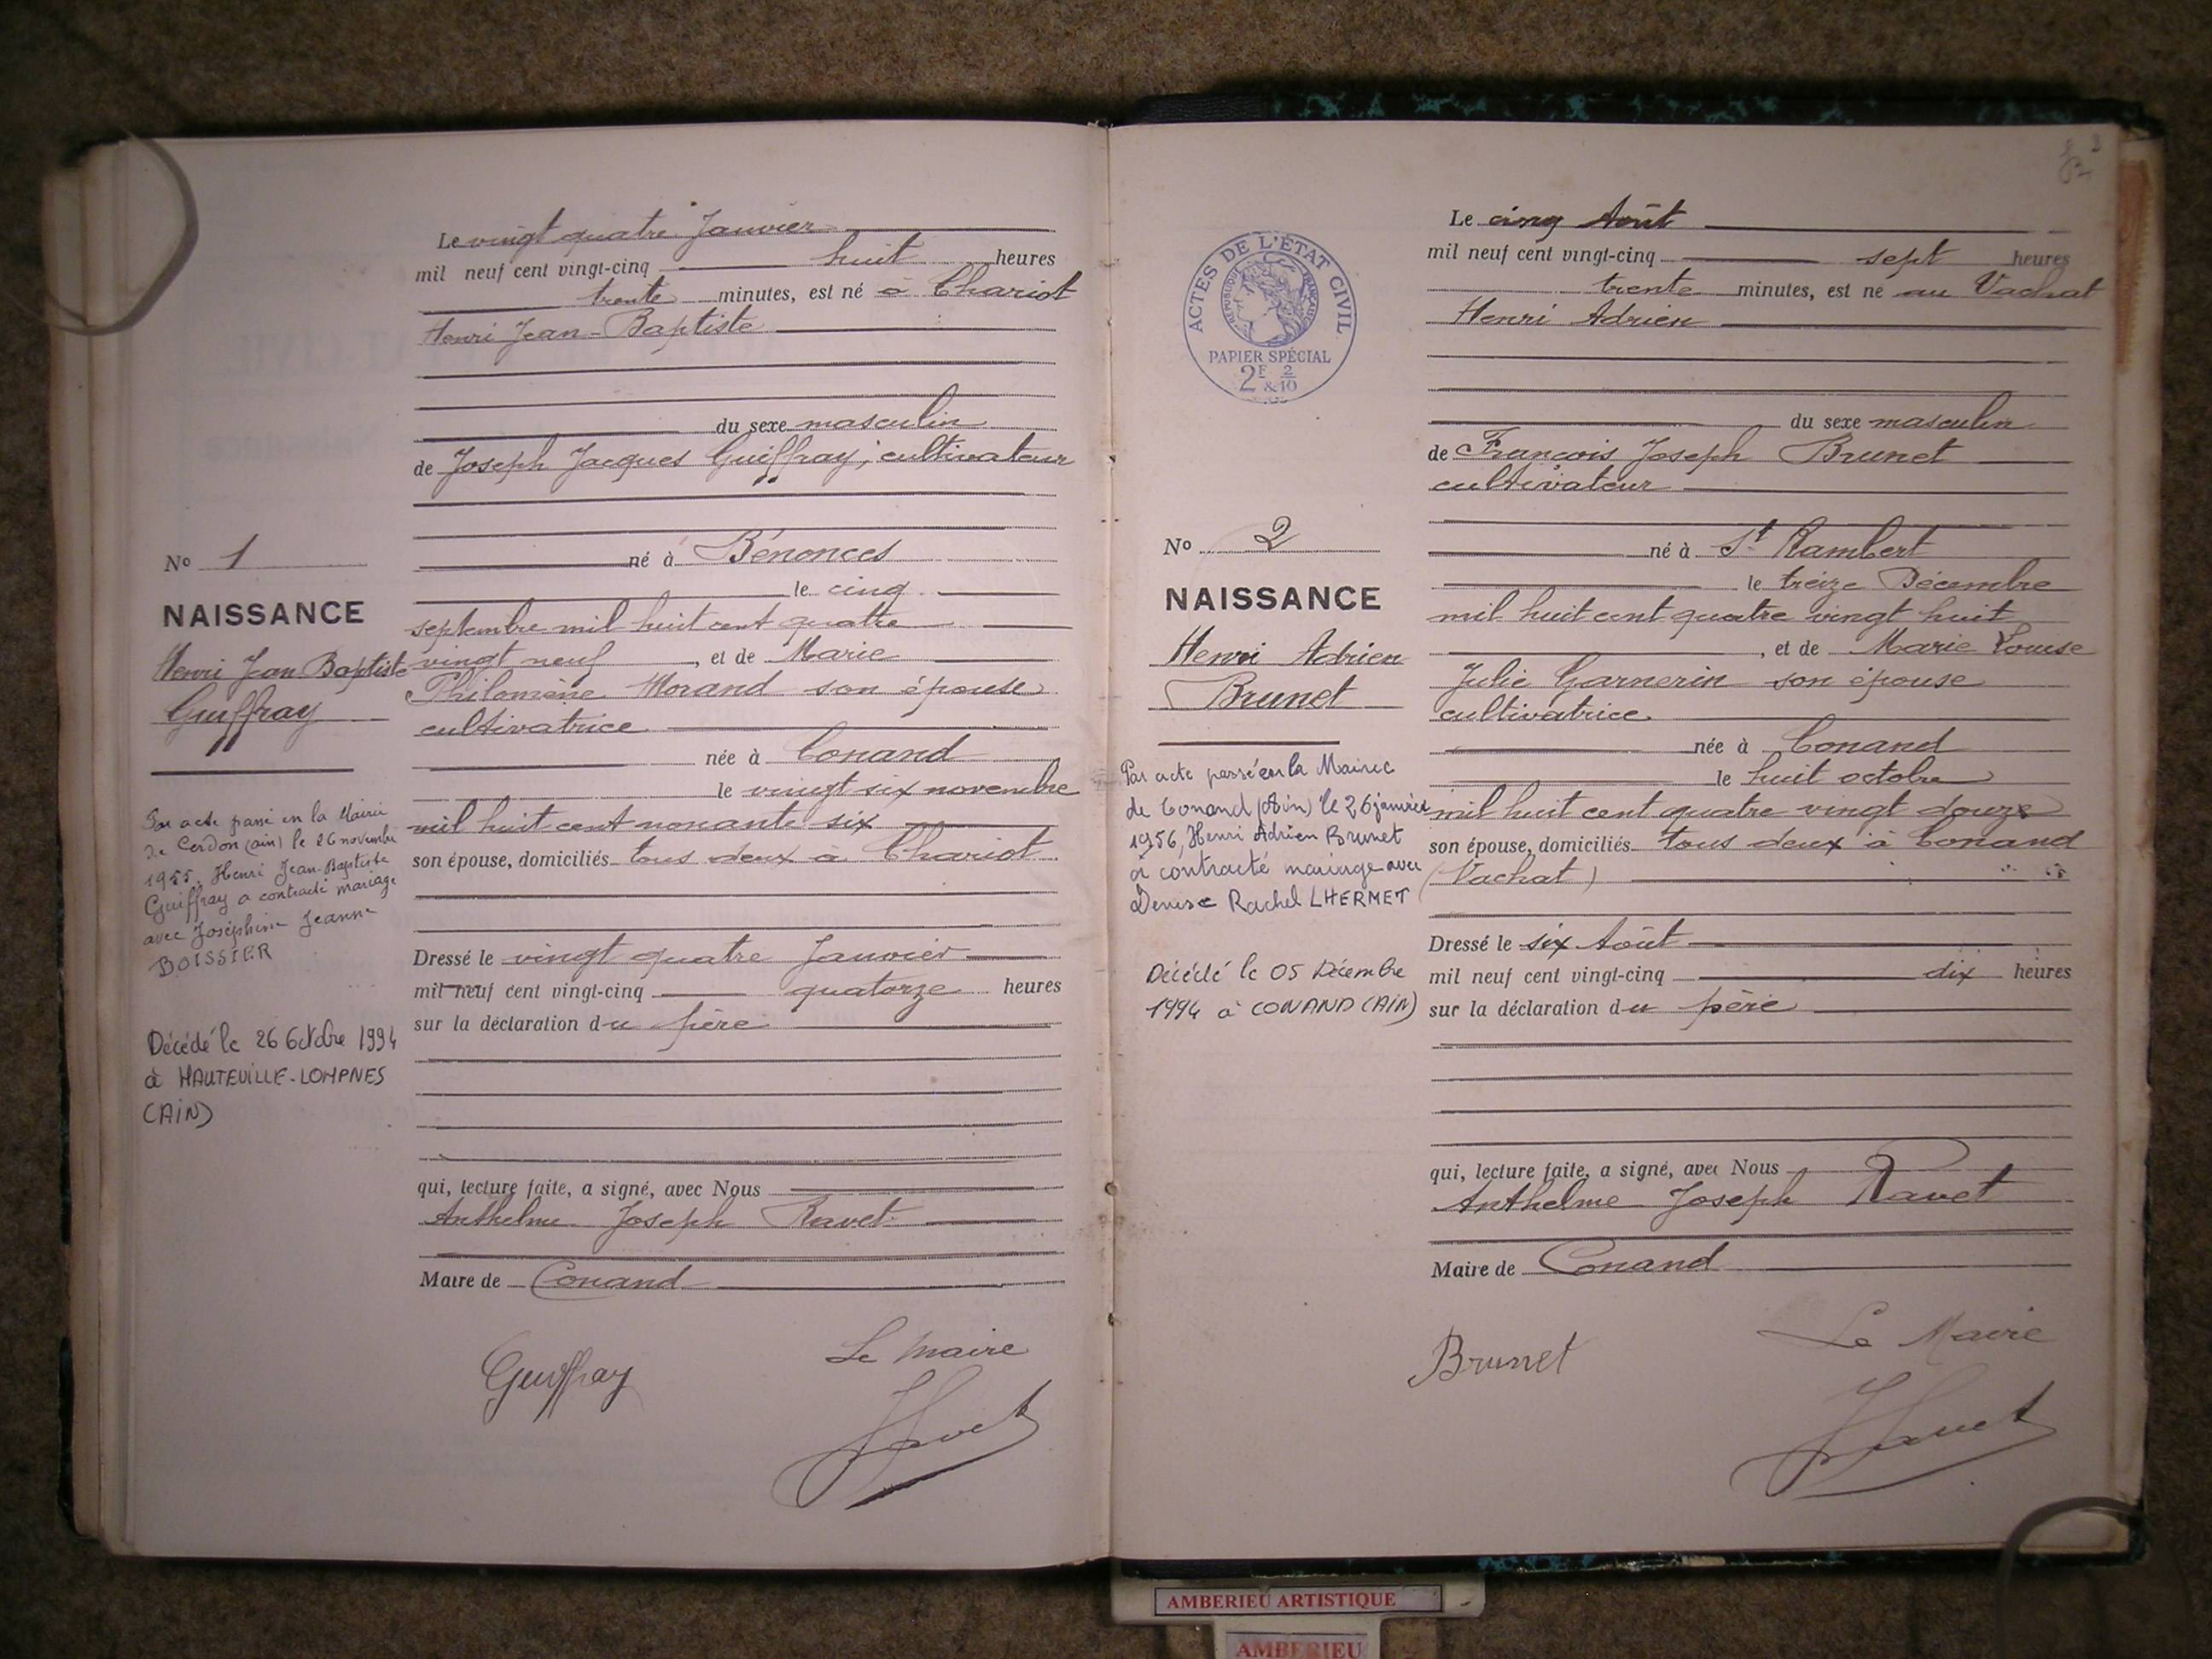 Le vingt quatre Janvier
mil neuf cent vingt-cinq huit heures
trente minutes, est né à Chariot
Henri Jean-Baptiste
du sexe masculin
de Joseph Jacques Guiffray, cultivateur
né à Bénonces
le cinq
septembre mil huit cent quatre
vingt neuf, et de Marie
Philomène Morand son épouse
cultivatrice
née à Conand
le vingt six novembre
mil huit cent nonante six
son épouse, domiciliés tous deux à Chariot
Dressé le vingt quatre Janvier
mil neuf cent vingt-cinq quatorze heures
sur la déclaration du père
qui, lecture faite, a signé, avec Nous
Anthelme Joseph Ravet
Maire de Conand
Guiffray
Le Maire
Ravet
No 1
NAISSANCE
Henri Jean Baptiste
Guiffray
Par acte passé en la Mairie
de Cerdon (ain) le 26 novembre
1955, Henri Jean-Baptiste
Guiffray a contracté mariage
avec Joséphine Jeanne
BOISSIER
Décédé le 26 Octobre 1994
à HAUTEVILLE-LOMPNES
(AIN)
ACTES DE L'ÉTAT CIVIL
RÉPUBLIQUE FRANÇAISE
PAPIER SPÉCIAL
2F & 2/10
No 2
NAISSANCE
Henri Adrien
Brunet
Par acte passé en la Mairie
de Conand (Ain) le 26 janvier
1956, Henri Adrien Brunet
a contracté mariage avec
Denise Rachel LHERMET
Décédé le 05 Décembre
1994 à CONAND (AIN)
Le cinq Août
mil neuf cent vingt-cinq sept heures
trente minutes, est né au Vachat
Henri Adrien
du sexe masculin
de François Joseph Brunet
cultivateur
né à St Rambert
le treize Décembre
mil huit cent quatre vingt huit
, et de Marie Louise
Julie Garnerin son épouse
cultivatrice
née à Conand
le huit octobre
mil huit cent quatre vingt douze
son épouse, domiciliés tous deux à Conand
(Vachat)
Dressé le six Août
mil neuf cent vingt-cinq dix heures
sur la déclaration du père
qui, lecture faite, a signé, avec Nous
Anthelme Joseph Ravet
Maire de Conand
Brunet
Le Maire
Ravet
AMBERIEU ARTISTIQUE
AMBERIEU